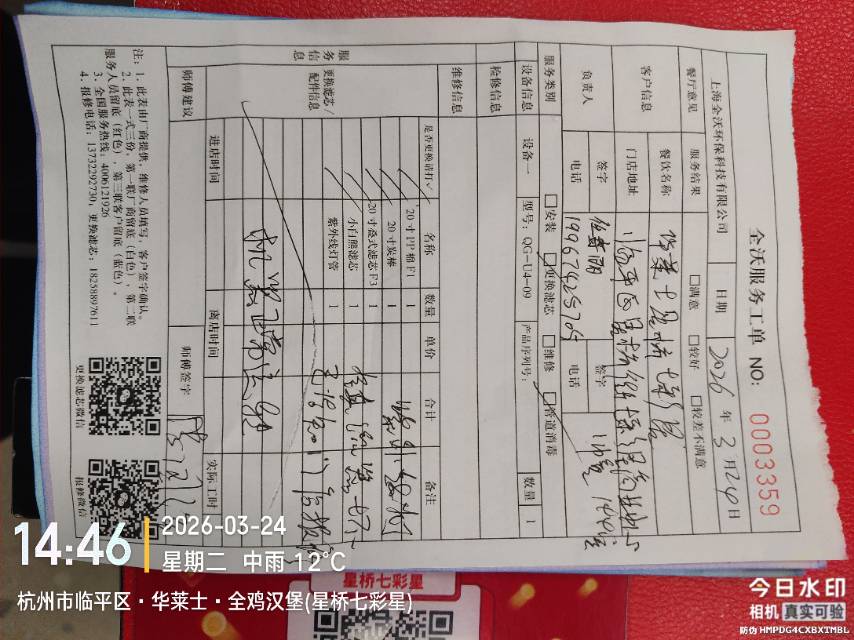 全沃服务工单 NO: 0003359
上海全沃环保科技有限公司 日期 2026年3月24日
餐厅意见 服务结果 □满意 □较好 □较差不满意
客户信息 餐饮名称 华莱士星桥七彩星
门店地址
负责人 签字 签字
电话 19967425705 电话
服务类别 □安装 □更换滤芯 □维修 □管道消毒
设备信息 设备一 型号: QG-U4-09 产品序列号: 数量 1
检修信息
维修信息
服务信息
更换滤芯/配件信息
是否更换请打✓ 名称 数量 单价 合计 备注
20寸PP棉F1 1
20寸炭棒 1
20寸叠式滤芯F3 1
小白熊滤芯 1
紫外线灯管 1
机器正常运行
进店时间 离店时间 实际工时
师傅建议 师傅签字
注: 1. 此表由厂商提供, 维修人员填写, 客户签字确认。
2. 此表一式三份, 第一联厂商留底(白色), 第二联
服务人员留底(红色), 第三联客户留底(蓝色)。
3. 全国服务热线: 4006121926
4. 报修电话: 13732292730, 更换滤芯: 18258897611
更换滤芯微信
报修微信
14:46
2026-03-24
星期二 中雨 12℃
杭州市临平区·华莱士·全鸡汉堡(星桥七彩星)
星桥七彩星
今日水印
相机 真实可验
防伪 HMPDG4CXBXTMBL